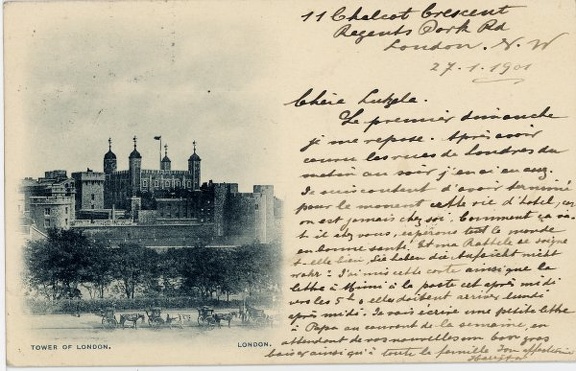 11 Chalcot Crescent
Regents Park Rd
London. N. W
27.1.1901
Chère Lutzela.
Le premier dimanche
je me repose. Après avoir
couru les rues de Londres du
matin au soir j'en ai assez.
Je suis content d'avoir terminé
pour le moment cette vie d'hôtel, car
on est jamais chez soi. Comment ça va
t il chez vous, espérons tout le monde
en bonne santé. Et ma se soigne
t-elle bien, Sie haben die Aufsicht nicht
wahr? J'ai mis cette carte ainsi que la
lettre à Mimi à la poste cet après midi
vers les 5 h elle doivent arriver lundi
après midi. Je vais écrire une petite lettre
à Papa au courant de la semaine, en
attendant de vos nouvelles un bon gros
baiser ainsi qu'à toute la famille Ton affectionné
TOWER OF LONDON.
LONDON.